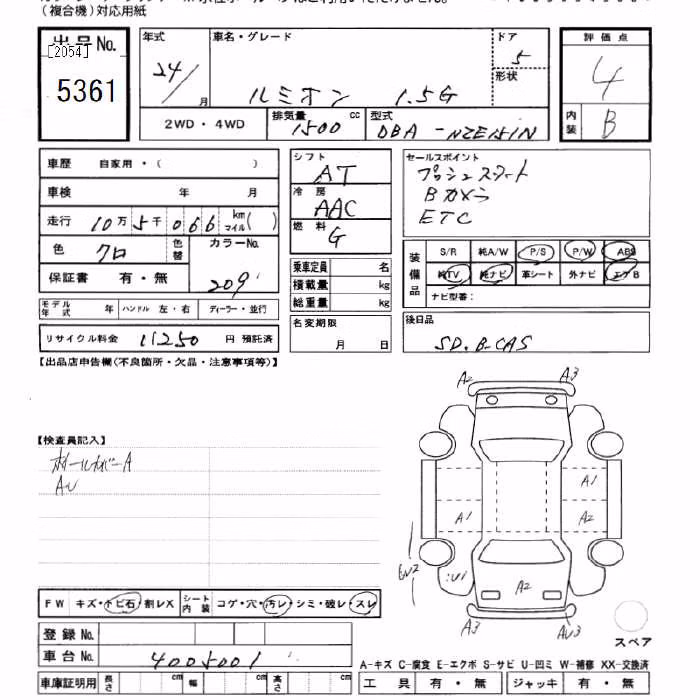 （複合機）対応用紙
出品No.
[2054]
5361
年式
24/
月
車名・グレード
ルミオン 1.5G
ドア
5
形状
2WD・4WD
排気量
1500 cc
型式
DBA-NZE151N
評価点
4
内装
B
車歴 自家用・( )
車検 年 月
走行 10万5千066 km マイル( )
色 クロ
色替
カラーNo.
209
保証書 有・無
モデル年式 年 ハンドル 左・右 ディーラー・並行
リサイクル料金 11250 円 預託済
シフト
AT
冷房
AAC
燃料
G
乗車定員 名
積載量 kg
総重量 kg
名変期限
月 日
セールスポイント
プッシュスタート
Bカメラ
ETC
装備品
S/R 純A/W P/S P/W ABS
純TV 純ナビ 革シート 外ナビ エアB
ナビ型番：
後日品
SD.B-CAS
【出品店申告欄(不良箇所・欠品・注意事項等)】
【検査員記入】
ホイールカバーA
AU
A2 A3
A1
A1 A2
U1
A2
A3 AU3
スペア
FW キズ・トビ石・割レX
シート内装 コゲ・穴・汚レ・シミ・破レ・スレ
登録No.
車台No. 4005001
車庫証明用 長さ cm 幅 cm 高さ cm
A-キズ C-腐食 E-エクボ S-サビ U-凹ミ W-補修 XX-交換済
工具 有・無 ジャッキ 有・無